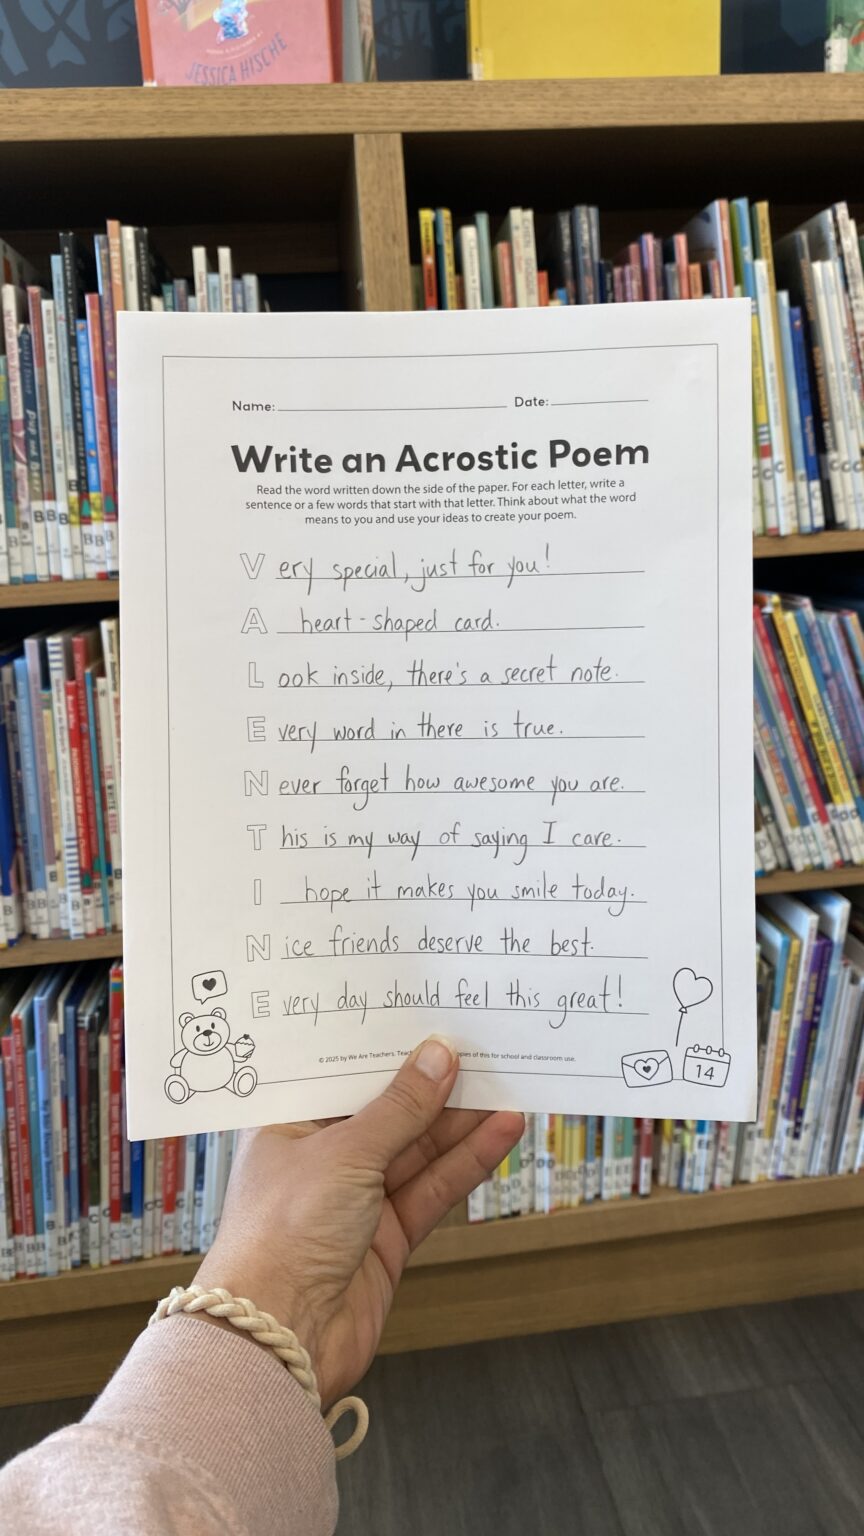 JESSICA HISCHE
Name:
Date:
Write an Acrostic Poem
Read the word written down the side of the paper. For each letter, write a
sentence or a few words that start with that letter. Think about what the word
means to you and use your ideas to create your poem.
Very special, just for you!
A heart-shaped card.
Look inside, there's a secret note.
Every word in there is true.
Never forget how awesome you are.
This is my way of saying I care.
I hope it makes you smile today.
Nice friends deserve the best.
Every day should feel this great!
© 2025 by We Are Teachers. copies of this for school and classroom use.
14